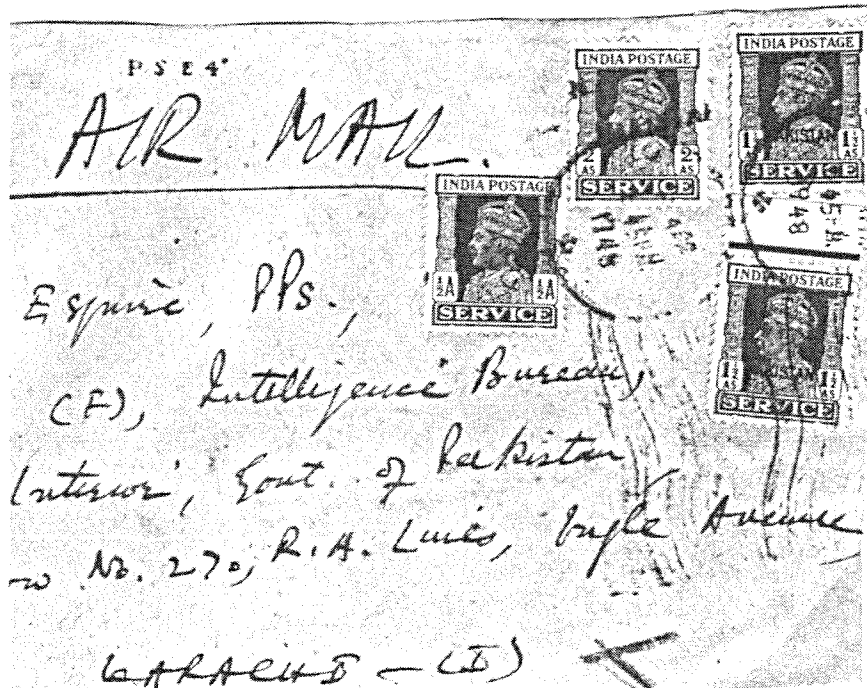 P S E 4
AIR MAIL.
INDIA POSTAGE
2 AS 2 AS
SERVICE
INDIA POSTAGE
1½ AS PAKISTAN 1½ AS
SERVICE
INDIA POSTAGE
½A ½A
SERVICE
INDIA POSTAGE
1½ AS PAKISTAN 1½ AS
SERVICE
1948
1948
Esquire, PPs.,
(F), Intelligence Bureau,
Interior, Govt. of Pakistan
No. 270, R.A. Lines, Ingle Avenue
KARACHI - (I)